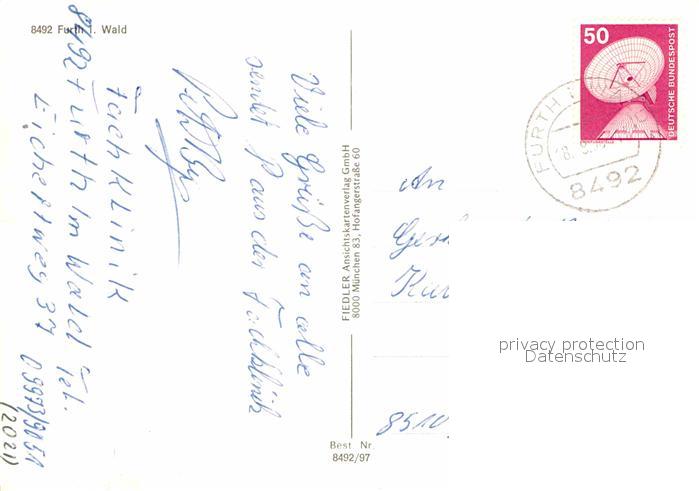 8492 Furth i. Wald
Viele Grüße an alle
sendet P aus der Fachklinik
Fachklinik
8492 Furth im Wald Tel.
Eichertweg 37 09973/9051
(2021)
FIEDLER Ansichtskartenverlag GmbH
8000 München 83, Hofangerstraße 60
Best. Nr.
8492/97
50
DEUTSCHE BUNDESPOST
FURTH
8492
An
8510
privacy protection
Datenschutz